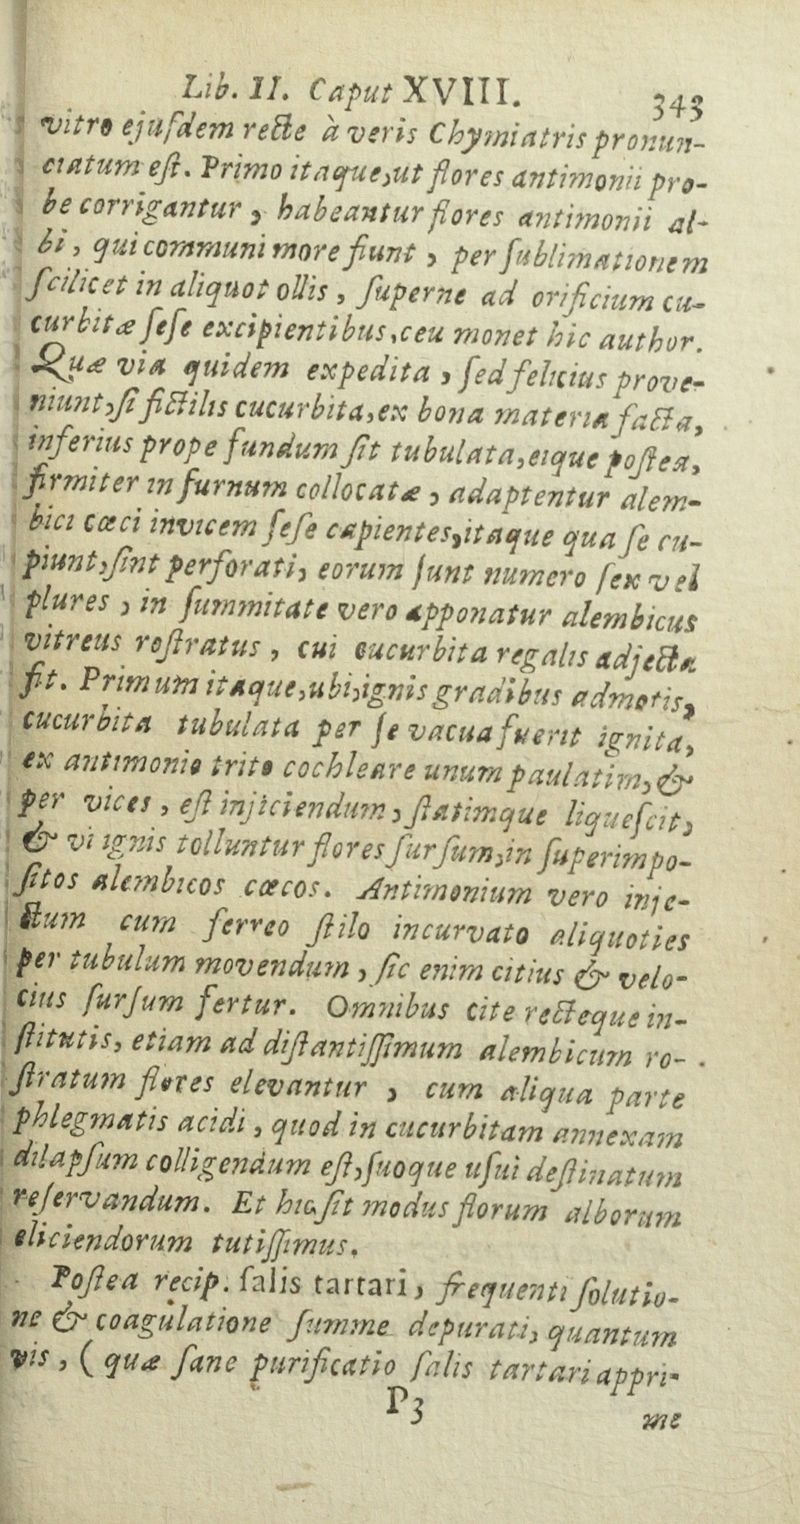 Lib. II. Caput XVIII. 343
vitro ejuſdem recte à veris Chymiatris pronun-
ciatum eſt. Primo itaque, ut flores antimonii pro-
be corrigantur, habeantur flores antimonii al-
bi, qui communi more fiunt, per ſublimationem
ſcilicet in aliquot ollis, ſuperne ad orificium cu-
curbitæ ſeſe excipientibus, ceu monet hic author.
Quæ via quidem expedita, ſed felicius prove-
niunt, ſi fictilis cucurbita, ex bona materia facta,
inferius prope fundum ſit tubulata, eique poſtea,
firmiter in furnum collocatæ, adaptentur alem-
bici cœci invicem ſeſe capientes, itaque qua ſe cu-
piunt, ſint perforati, eorum ſunt numero ſex vel
plures, in ſummitate vero apponatur alembicus
vitreus roſtratus, cui cucurbita regalis adjecta
ſit. Primum itaque, ubi, ignis gradibus admotis,
cucurbita tubulata per ſe vacua fuerit ignita,
ex antimonio trito cochleare unum paulatim, &
per vices, eſt injiciendum, ſtatimque liqueſcit,
& vi ignis tolluntur flores ſurſum, in ſuperimpo-
ſitos alembicos cœcos. Antimonium vero inje-
ctum cum ferreo ſtilo incurvato aliquoties
per tubulum movendum, ſic enim citius & velo-
cius ſurſum fertur. Omnibus cite recteque in-
ſtitutis, etiam ad diſtantiſſimum alembicum ro-
ſtratum flores elevantur, cum aliqua parte
phlegmatis acidi, quod in cucurbitam annexam
dilapſum colligendum eſt, ſuoque uſui deſtinatum
reſervandum. Et hic ſit modus florum alborum
eliciendorum tutiſſimus.
Poſtea recip. ſalis tartari, frequenti ſolutio-
ne & coagulatione ſumme depurati, quantum
vis, (quæ ſane purificatio ſalis tartari appri-
P3 me